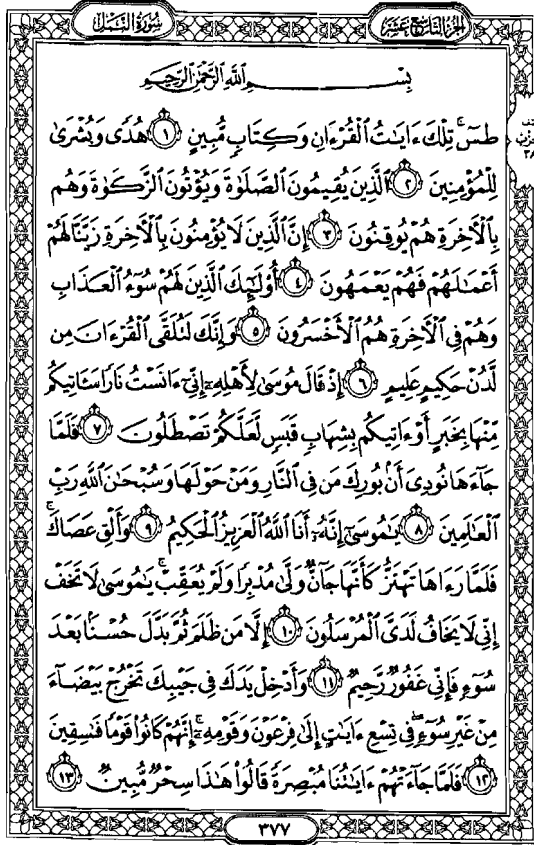 الجزء التاسع عشر
سورة النمل
بِسْمِ اللَّهِ الرَّحْمَٰنِ الرَّحِيمِ
طسٓ ۚ تِلْكَ ءَايَٰتُ ٱلْقُرْءَانِ وَكِتَابٍ مُّبِينٍ ١ هُدًى وَبُشْرَىٰ
لِلْمُؤْمِنِينَ ٢ ٱلَّذِينَ يُقِيمُونَ ٱلصَّلَوٰةَ وَيُؤْتُونَ ٱلزَّكَوٰةَ وَهُم
بِٱلْأَخِرَةِ هُمْ يُوقِنُونَ ٣ إِنَّ ٱلَّذِينَ لَا يُؤْمِنُونَ بِٱلْأَخِرَةِ زَيَّنَّا لَهُمْ
أَعْمَٰلَهُمْ فَهُمْ يَعْمَهُونَ ٤ أُو۟لَٰٓئِكَ ٱلَّذِينَ لَهُمْ سُوٓءُ ٱلْعَذَابِ
وَهُمْ فِى ٱلْأَخِرَةِ هُمُ ٱلْأَخْسَرُونَ ٥ وَإِنَّكَ لَتُلَقَّى ٱلْقُرْءَانَ مِن
لَّدُنْ حَكِيمٍ عَلِيمٍ ٦ إِذْ قَالَ مُوسَىٰ لِأَهْلِهِۦٓ إِنِّىٓ ءَانَسْتُ نَارًا سَـَٔاتِيكُم
مِّنْهَا بِخَبَرٍ أَوْ ءَاتِيكُم بِشِهَابٍ قَبَسٍ لَّعَلَّكُمْ تَصْطَلُونَ ٧ فَلَمَّا
جَآءَهَا نُودِىَ أَنۢ بُورِكَ مَن فِى ٱلنَّارِ وَمَنْ حَوْلَهَا وَسُبْحَٰنَ ٱللَّهِ رَبِّ
ٱلْعَٰلَمِينَ ٨ يَٰمُوسَىٰٓ إِنَّهُۥٓ أَنَا ٱللَّهُ ٱلْعَزِيزُ ٱلْحَكِيمُ ٩ وَأَلْقِ عَصَاكَ ۚ
فَلَمَّا رَءَاهَا تَهْتَزُّ كَأَنَّهَا جَآنٌّ وَلَّىٰ مُدْبِرًا وَلَمْ يُعَقِّبْ ۚ يَٰمُوسَىٰ لَا تَخَفْ
إِنِّى لَا يَخَافُ لَدَىَّ ٱلْمُرْسَلُونَ ١٠ إِلَّا مَن ظَلَمَ ثُمَّ بَدَّلَ حُسْنًۢا بَعْدَ
سُوٓءٍ فَإِنِّى غَفُورٌ رَّحِيمٌ ١١ وَأَدْخِلْ يَدَكَ فِى جَيْبِكَ تَخْرُجْ بَيْضَآءَ
مِنْ غَيْرِ سُوٓءٍ ۖ فِى تِسْعِ ءَايَٰتٍ إِلَىٰ فِرْعَوْنَ وَقَوْمِهِۦٓ ۚ إِنَّهُمْ كَانُوا۟ قَوْمًا فَٰسِقِينَ
١٢ فَلَمَّا جَآءَتْهُمْ ءَايَٰتُنَا مُبْصِرَةً قَالُوا۟ هَٰذَا سِحْرٌ مُّبِينٌ ١٣
٣٧٧